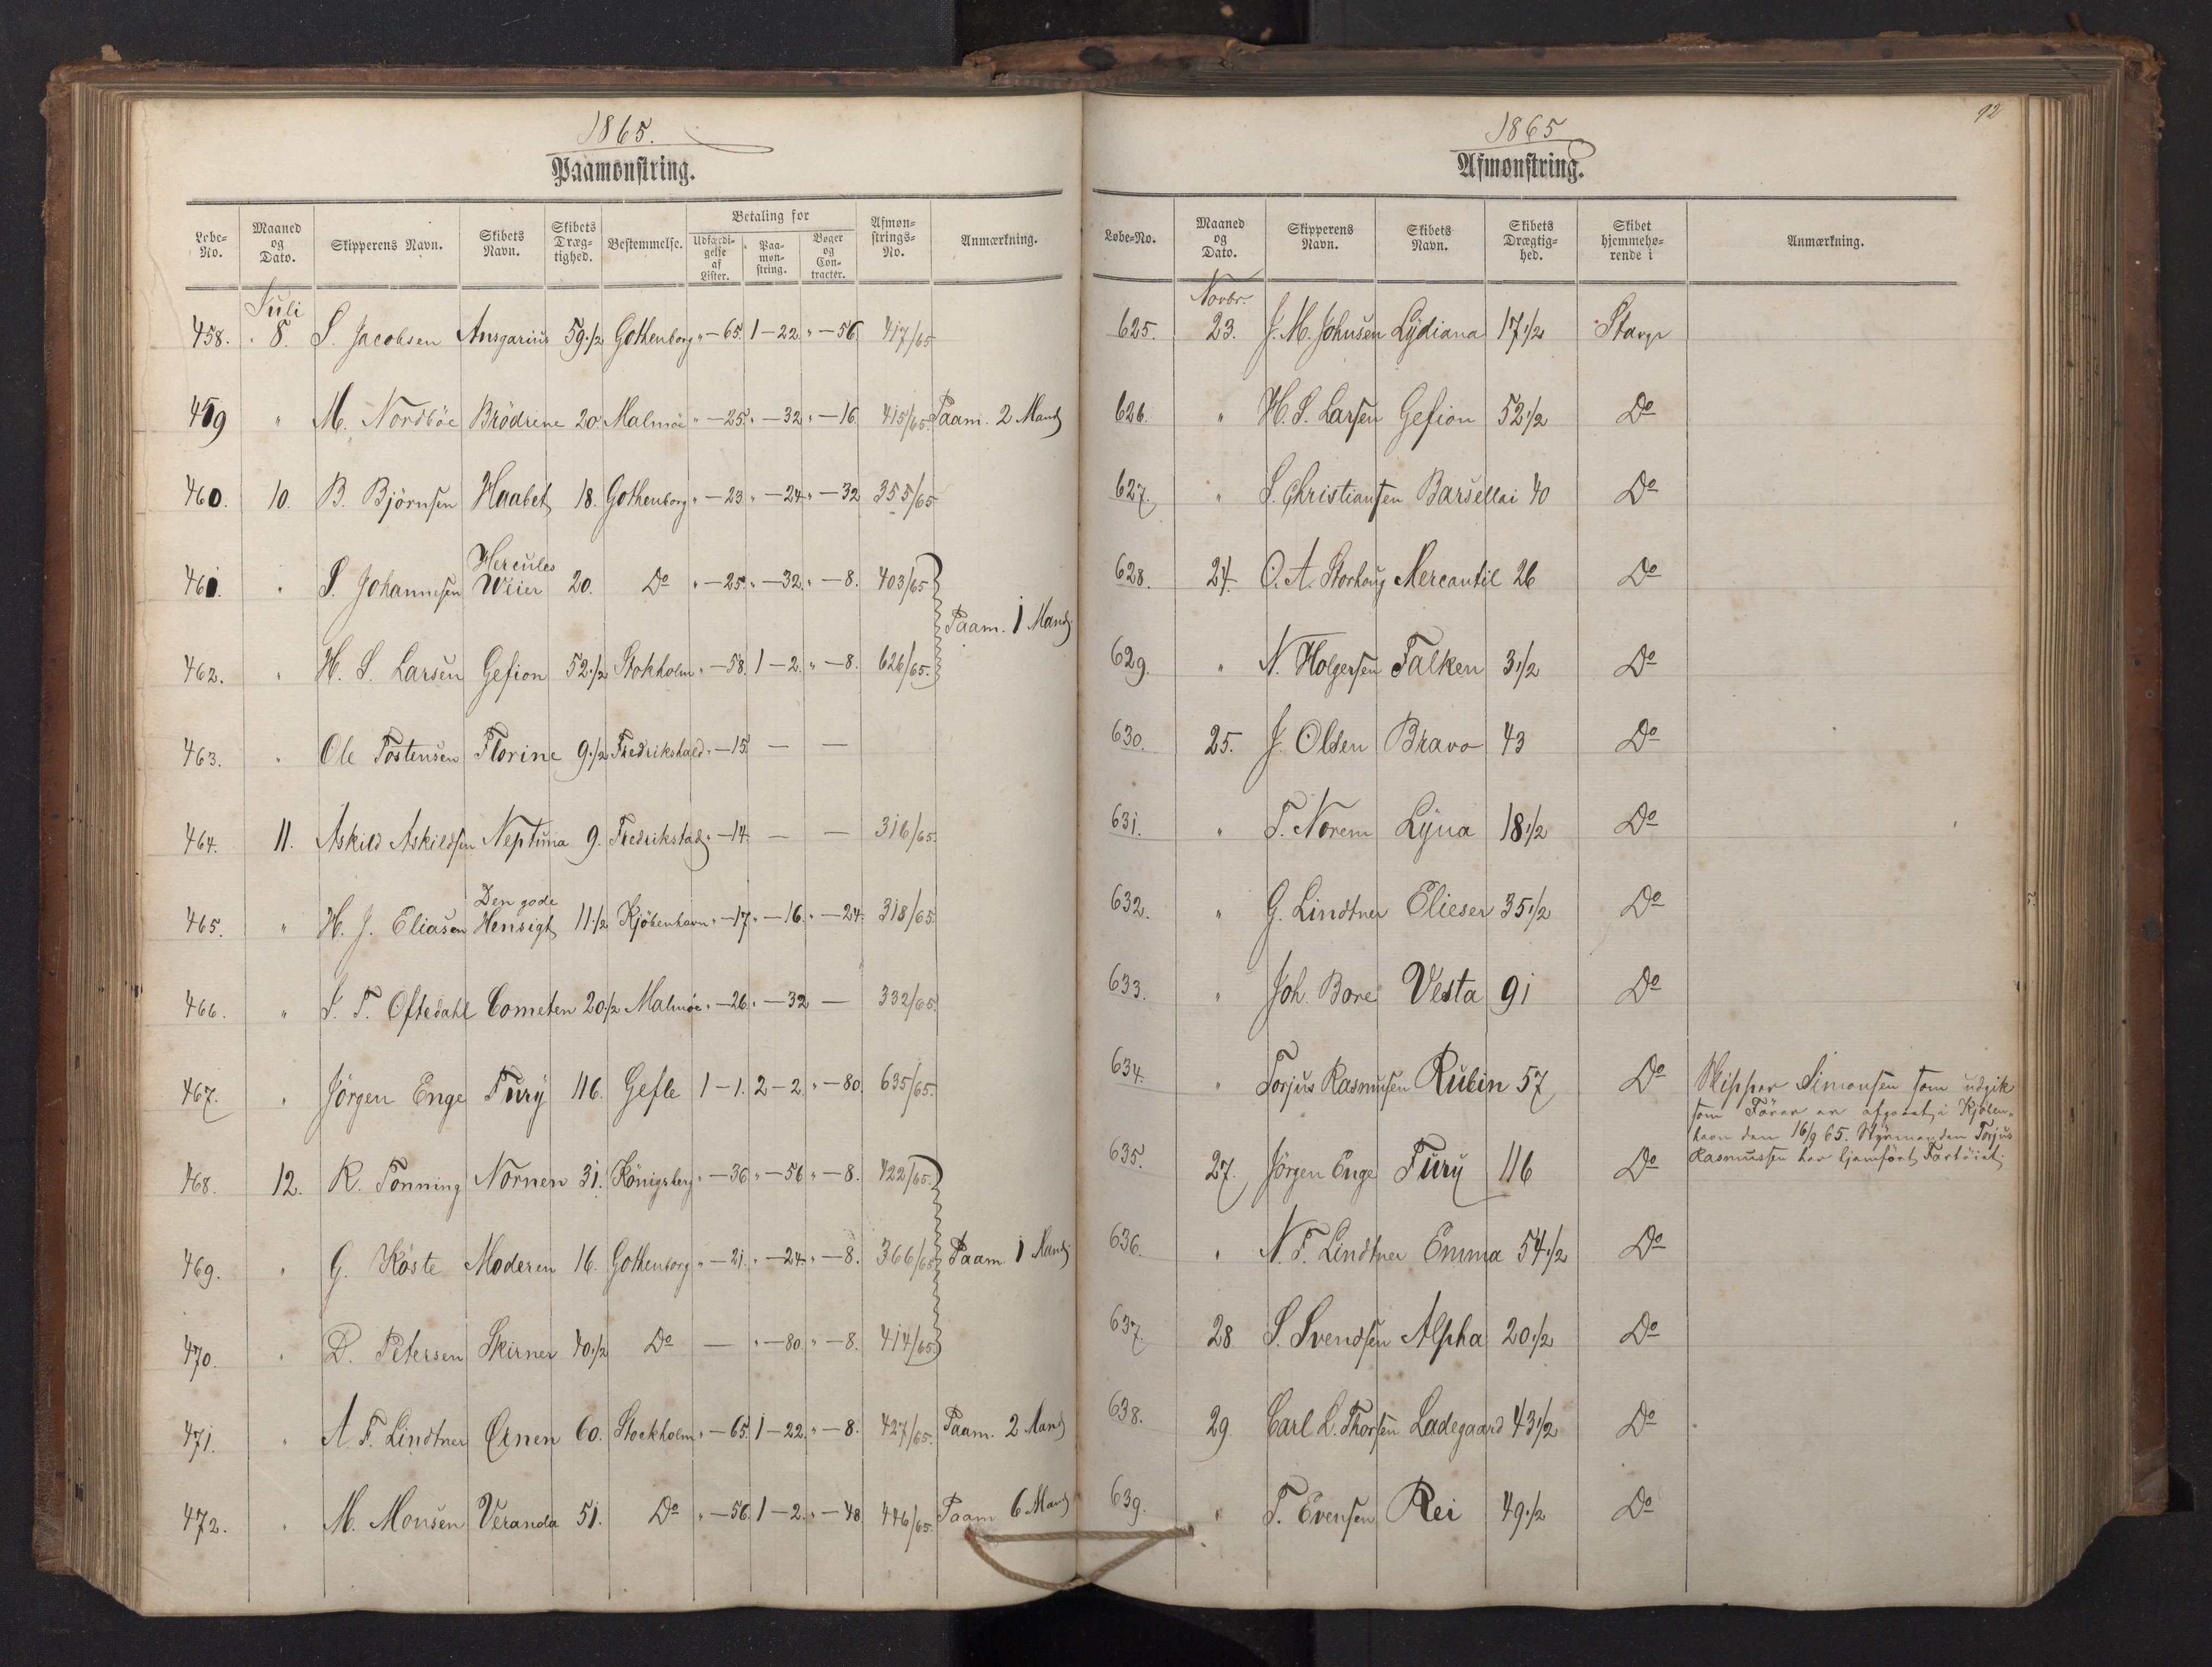 1865.
Paamønstring.
Løbe-No. Maaned og Dato. Skipperens Navn. Skibets Navn. Skibets Dræg-tighed. Bestemmelse. Betaling for Udfærdi-gelse af Lister. Paa-møn-string. Bøger og Con-tracter. Afmøn-strings-No. Anmærkning.
Juli
458. " 8. S. Jacobsen Ansgarius 59 1/2 Gothenborg " — 65. 1 — 22. " — 56 417/65
459 " M. Nordbøe Brödrene 20. Malmöe " — 25. " — 32. " — 16. 415/65. Paam. 2 Mand
460. 10. B. Björnsen Haabet 18. Gothenborg " — 23. " — 24. " — 32 355/65
461. " S. Johannesen Hercules Weier 20. Do " — 25. " — 32. " — 8. 403/65
Paam. 1 Mand.
462. " H. S. Larsen Gefion 52 1/2 Stokholm " — 58. 1 — 2. " — 8. 626/65.
463. " Ole Tostensen Florine 9 1/2 Fredrikshald " — 15. — —
464. 11. Askild Askildsen Neptuna 9. Fredrikstad " — 14. — — 316/65.
465. " H. J. Eliasen Den gode Hensigt 11 1/2 Kjöbenhavn " — 17. " — 16. " — 24. 318/65
466. " S. T. Oftedahl Cometen 20 1/2 Malmöe " — 26. " — 32 — 332/65.
467. " Jörgen Enge Fury 116. Gefle 1 — 1. 2 — 2. " — 80. 635/65.
468. 12. R. Tönning Nornen 31. Königsberg " — 36 " — 56 " — 8. 422/65.
469. " G. Köste Moderen 16. Gothenborg " — 21. " — 24. " — 8. 366/65 Paam. 1 Mand.
470. " D. Petersen Skirner 40 1/2 Do — " — 80. " — 8. 414/65
471. " A. F. Lindtner Ørnen 60. Stockholm " — 65. 1 — 22. " — 8. 427/65. Paam. 2 Mand
472. " M. Monsen Veranda 51. Do " — 56. 1 — 2. " — 48 446/65. Paam 6 Mand
92
1865
Afmønstring.
Løbe-No. Maaned og Dato. Skipperens Navn. Skibets Navn. Skibets Drægtig-hed. Skibet hjemmehø-rende i Anmærkning.
Novbr.
625. 23. J. M. Johnsen Lydiana 17 1/2 Stavgr
626. " H. S. Larsen Gefion 52 1/2 Do
627. " S. Christiansen Barsellai 40 Do
628. 24. O. A. Storhoug Mercantil 26 Do
629. " N. Holgersen Falken 3 1/2 Do
630. 25. J. Olsen Bravo 43 Do
631. " T. Norem Lyna 18 1/2 Do
632. " G. Lindtner Elieser 35 1/2 Do
633. " Joh. Bore Vesta 91 Do
634. " Torjus Rasmusen Rubin 57 Do Skipper Simonsen som udgik
som Fører er afgaaet i Kjöben-
havn den 16/9 65. Styrmanden Torjus
Rasmussen har hjemført Fartöiet.
635. 27. Jörgen Enge Fury 116 Do
636. " N. F. Lindtner Emma 54 1/2 Do
637. 28. S. Svendsen Alpha 20 1/2 Do
638. 29. Carl L. Thorsen Ladegaard 43 1/2 Do
639. " T. Evensen Rei 49 1/2 Do